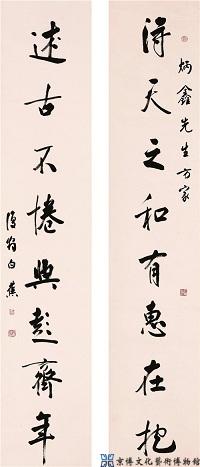 炳鑫先生方家
得天之和有惠在抱
述古不惓與彭齊年
復翁白蕉
京博文化藝術博物館